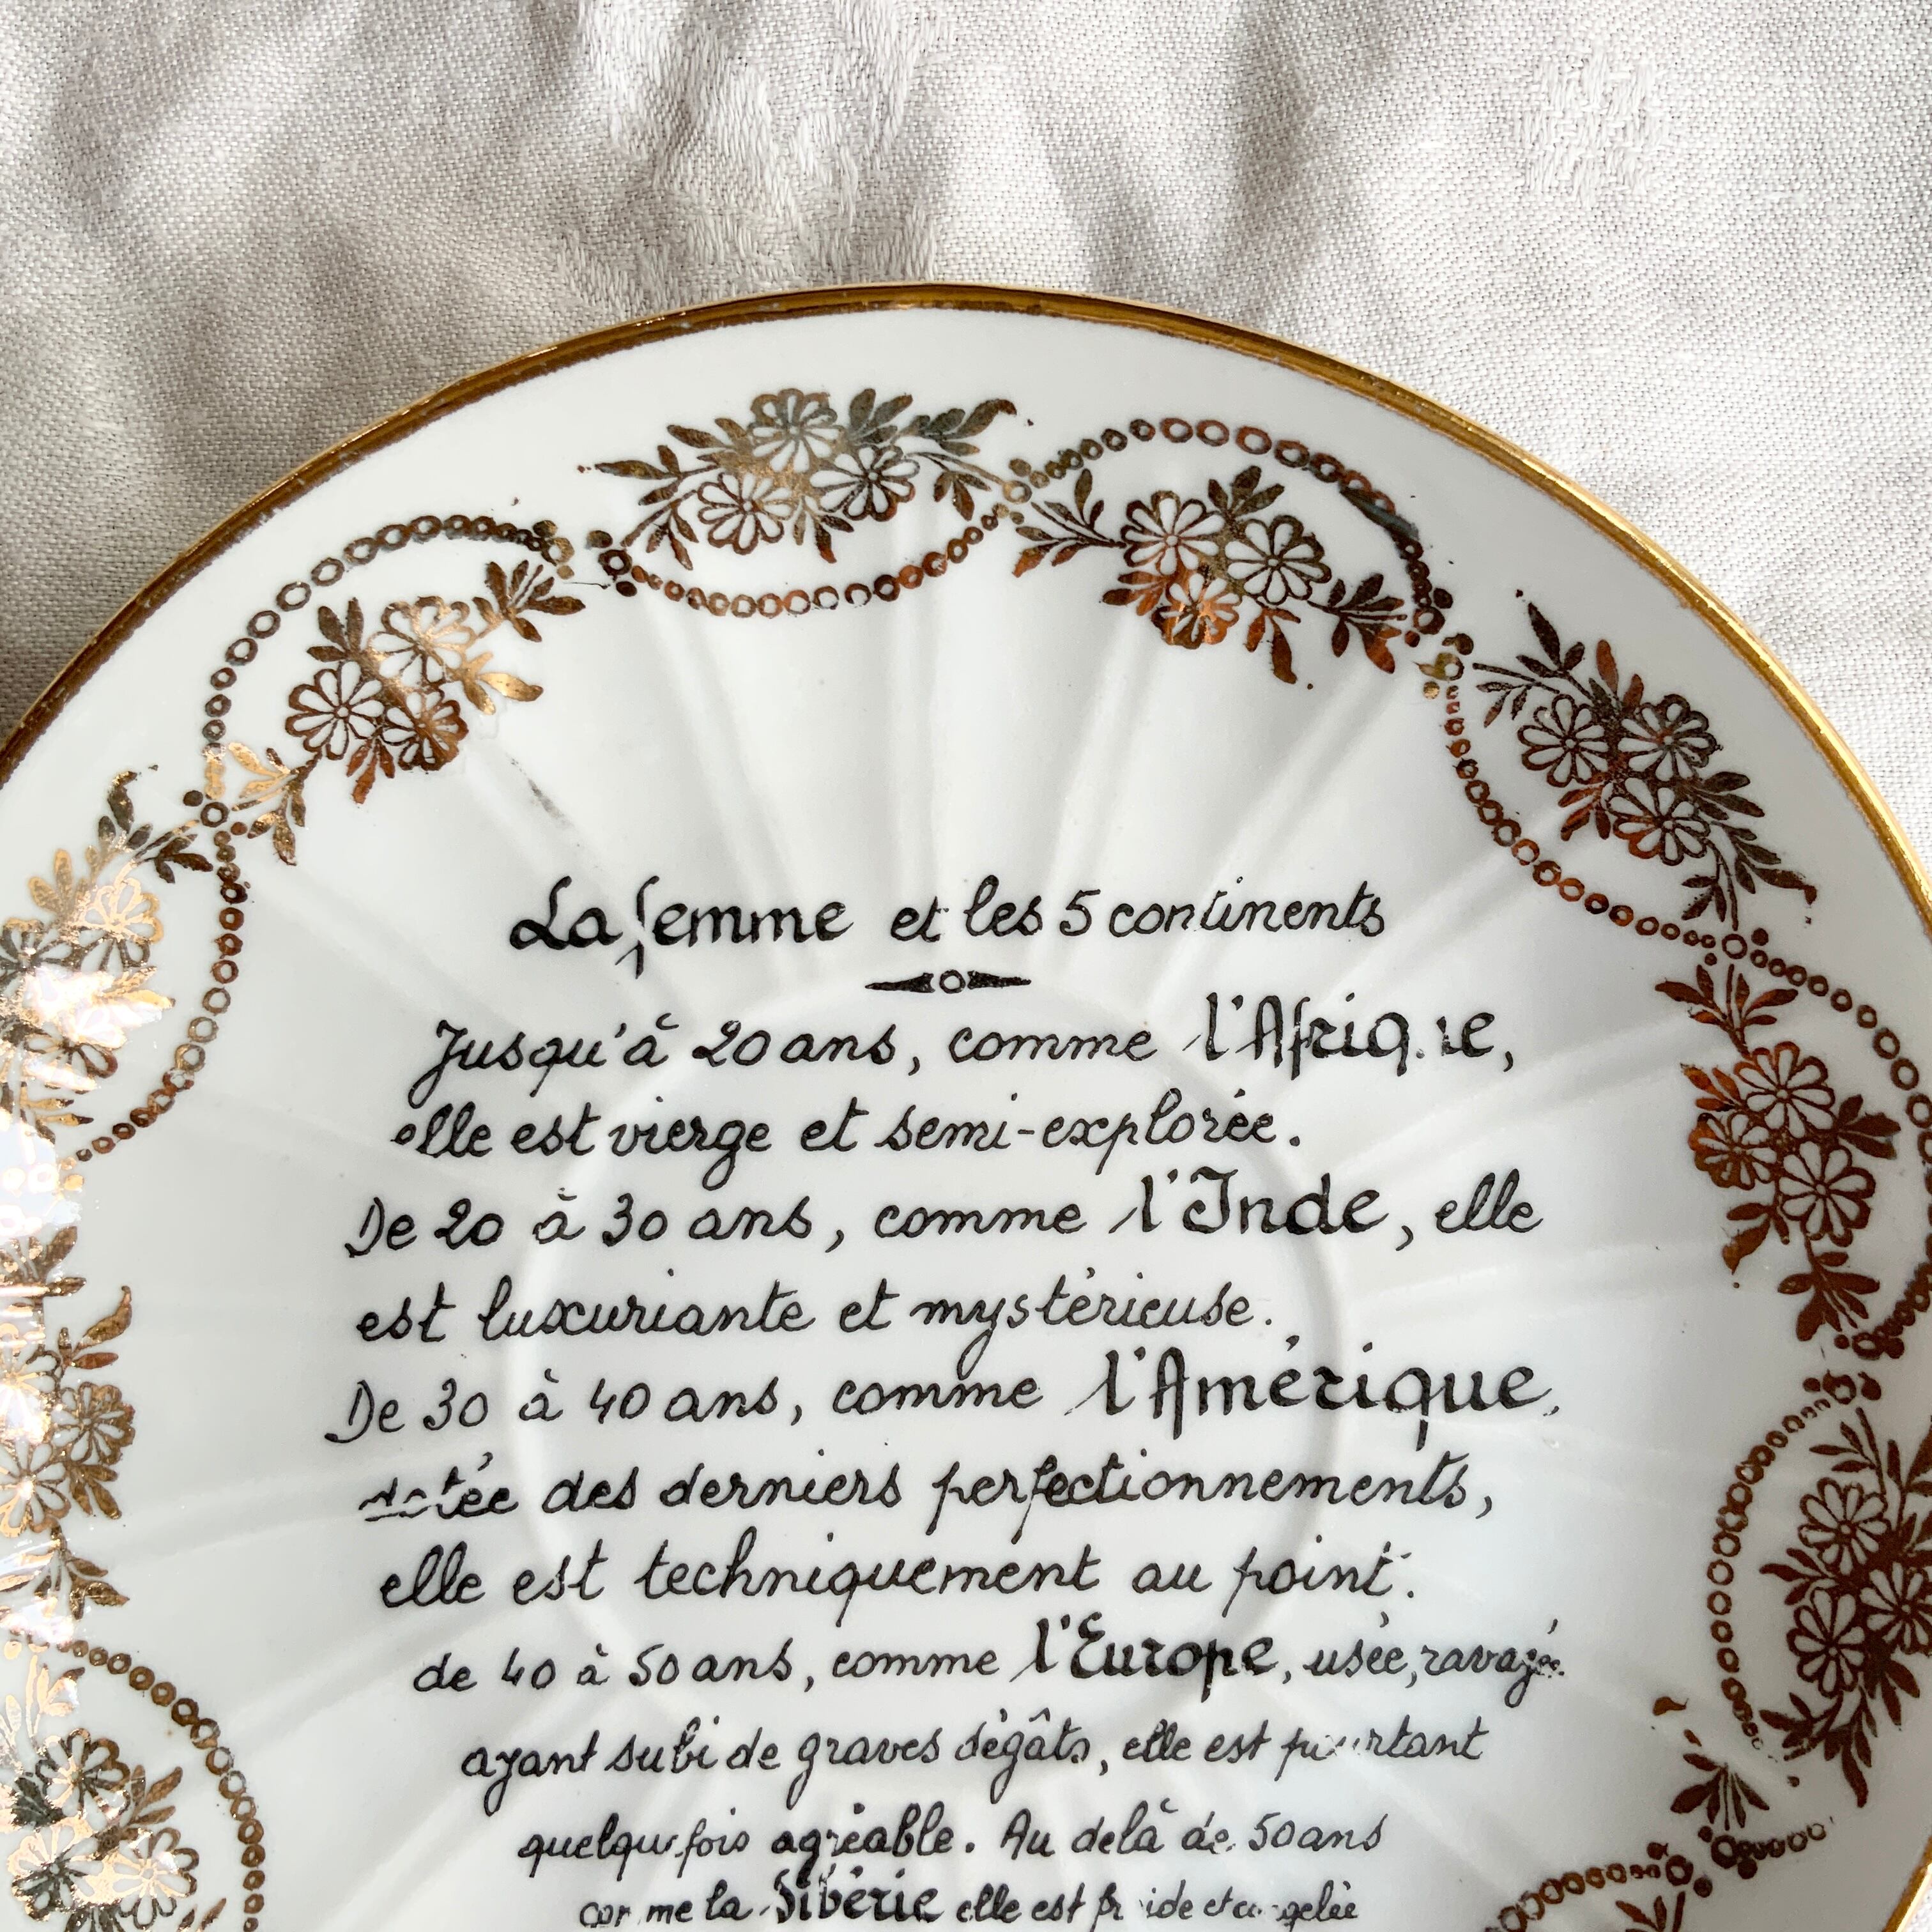 La femme et les 5 continents
Jusqu'à 20 ans, comme l'Afrique,
elle est vierge et semi-explorée.
De 20 à 30 ans, comme l'Inde, elle
est luxuriante et mystérieuse.
De 30 à 40 ans, comme l'Amérique,
dotée des derniers perfectionnements,
elle est techniquement au point.
de 40 à 50 ans, comme l'Europe, usée, ravagée
ayant subi de graves dégâts, elle est pourtant
quelquefois agréable. Au delà de 50 ans
comme la Sibérie elle est froide et congelée